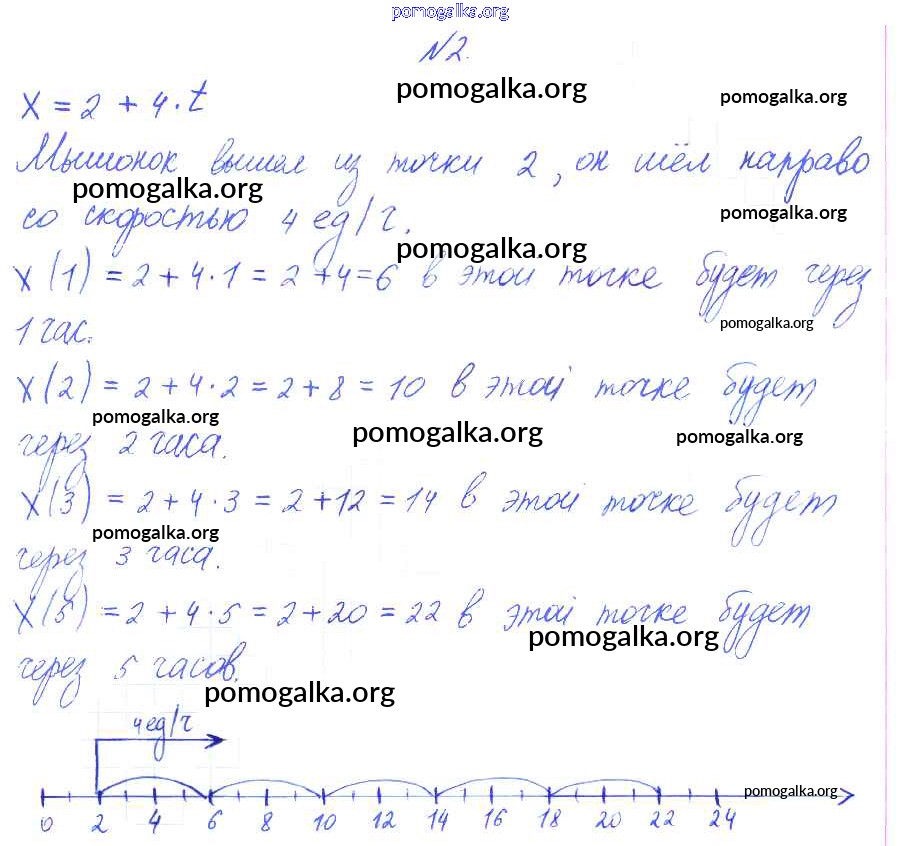 pomogalka.org
N2.
pomogalka.org
x = 2 + 4·t
pomogalka.org
Мышонок вышел из точки 2, он шёл направо
pomogalka.org
со скоростью 4 ед/ч.
pomogalka.org
pomogalka.org
x(1) = 2 + 4·1 = 2 + 4 = 6 в этой точке будет через
1 час.
pomogalka.org
x(2) = 2 + 4·2 = 2 + 8 = 10 в этой точке будет
pomogalka.org
через 2 часа.
pomogalka.org
pomogalka.org
x(3) = 2 + 4·3 = 2 + 12 = 14 в этой точке будет
pomogalka.org
через 3 часа.
x(5) = 2 + 4·5 = 2 + 20 = 22 в этой точке будет
pomogalka.org
через 5 часов.
pomogalka.org
4 ед/ч
pomogalka.org
0 2 4 6 8 10 12 14 16 18 20 22 24